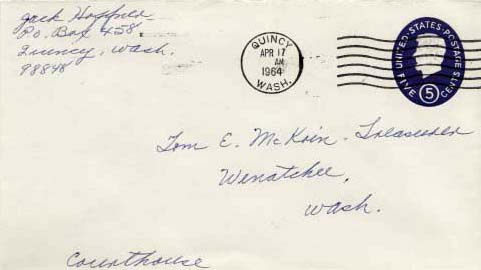 Jack Hoffner
P.O. Box 458
Quincy, Wash.
98848
QUINCY
APR 17
AM
1964
WASH.
UNITED·STATES·POSTAGE
FIVE 5 CENTS
Tom E. McKoin - Treasurer
Wenatchee,
Wash.
Courthouse